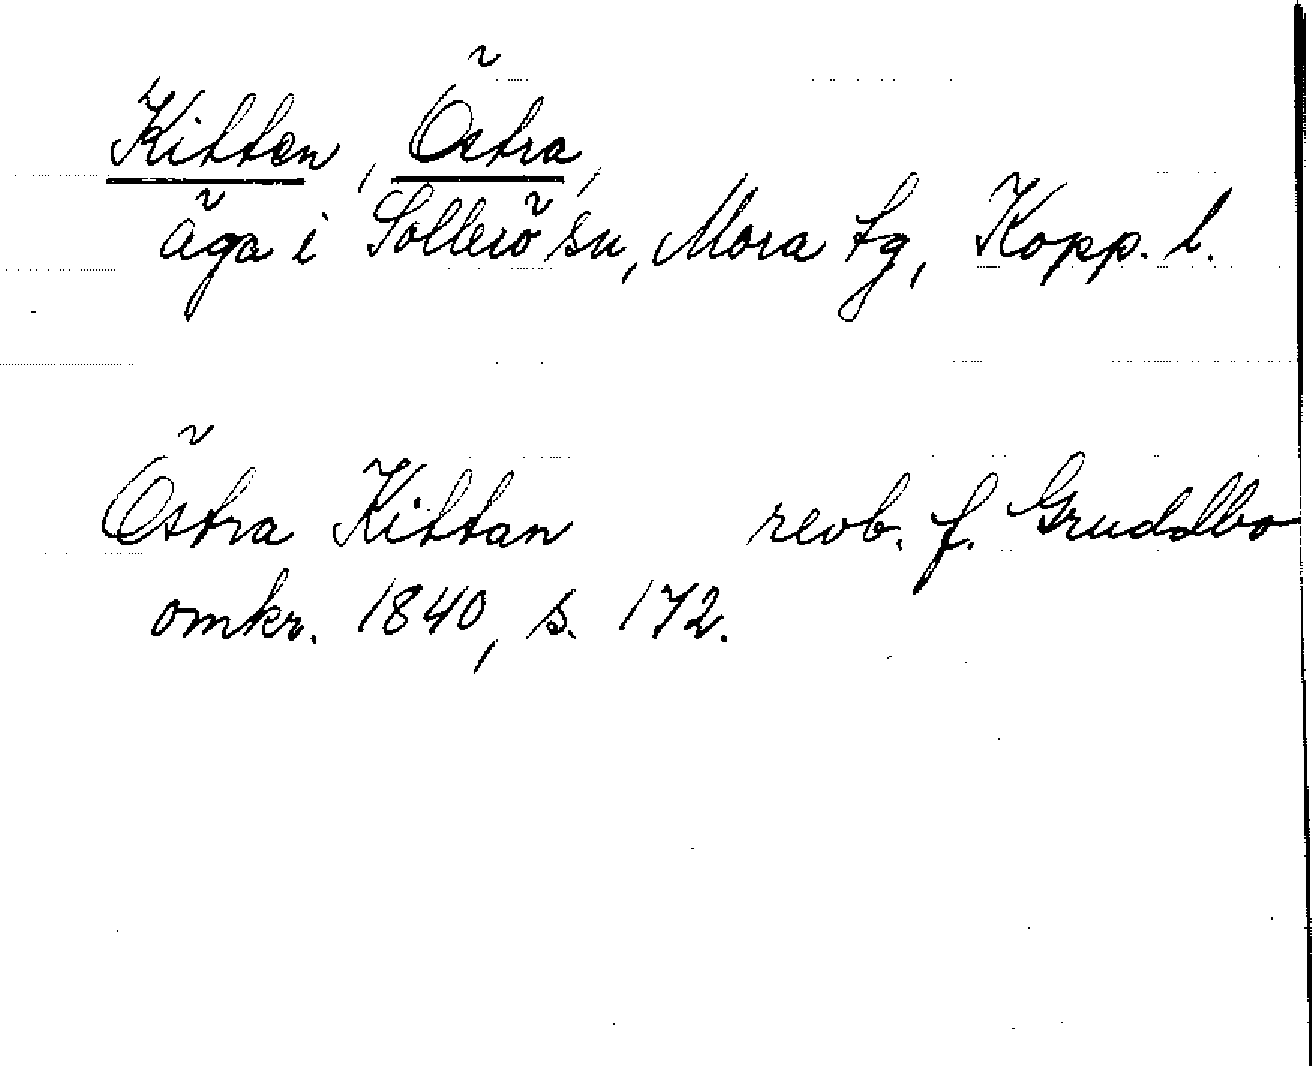 Kitten, Östra,
äga i Sollerö sn, Mora tg, Kopp. l.
Östra Kittan revb. f. Gruddbo
omkr. 1840, s. 172.